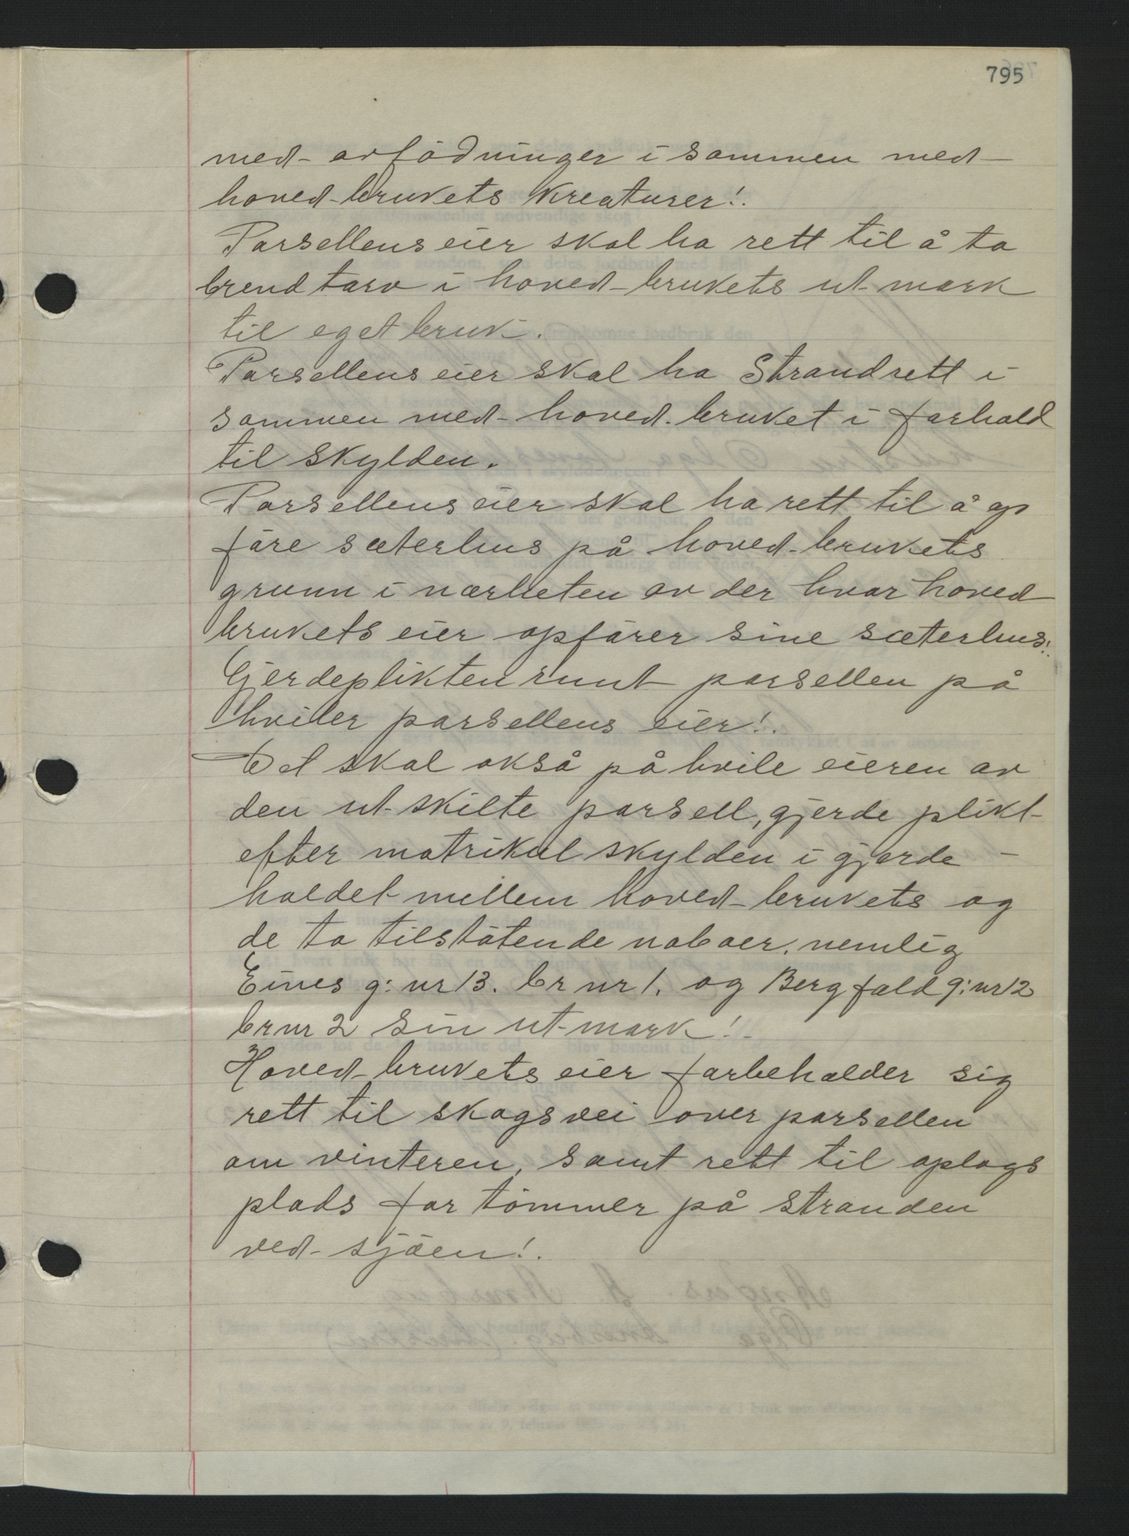 795
med avfödninger i sammen med
hoved-brukets kreaturer!.
Parsellens eier skal ha rett til å ta
brendtarv i hoved-brukets ut-mark
til eget bruk.
Parsellens eier skal ha Strandrett i
sammen med hoved-bruket i forhold
til skylden.
Parsellens eier skal ha rett til å op
føre sæterhus på hoved-brukets
grunn i nærheten av der hvor hoved
brukets eier opfører sine sæterhus!.
Gjerdeplikten runt parsellen på
hviler parsellens eier!.
Det skal også på hvile eieren av
den ut-skilte parsell, gjerde plikt
efter matrikul skylden i gjærde-
holdet mellem hoved-brukets og
de to tilstötende naboer. nemlig
Eines g: nr 13. br nr 1. og Bergfald g: nr 12
br nr 2 sin ut-mark!.
Hoved-brukets eier forbeholder sig
rett til skogsvei over parsellen
om vinteren, samt rett til oplags
plads for tömmer på stranden
ved sjöen!.